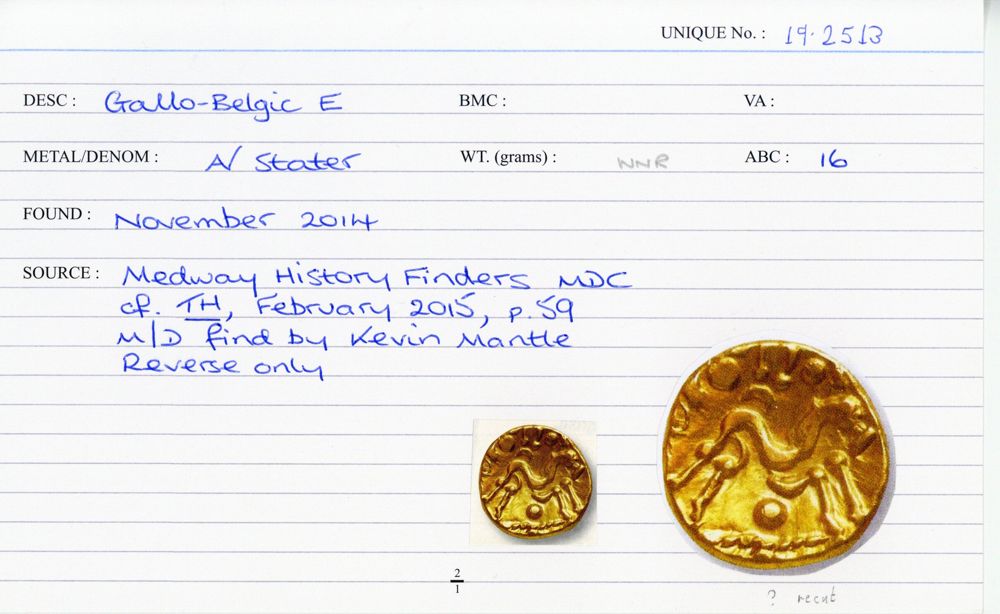 UNIQUE No. : 19.2513
DESC : Gallo-Belgic E BMC : VA :
METAL/DENOM : A/ Stater WT. (grams) : WNR ABC : 16
FOUND : November 2014
SOURCE : Medway History Finders MDC
cf. TH, February 2015, p.59
M/D find by Kevin Mantle
Reverse only
2
1
? recut